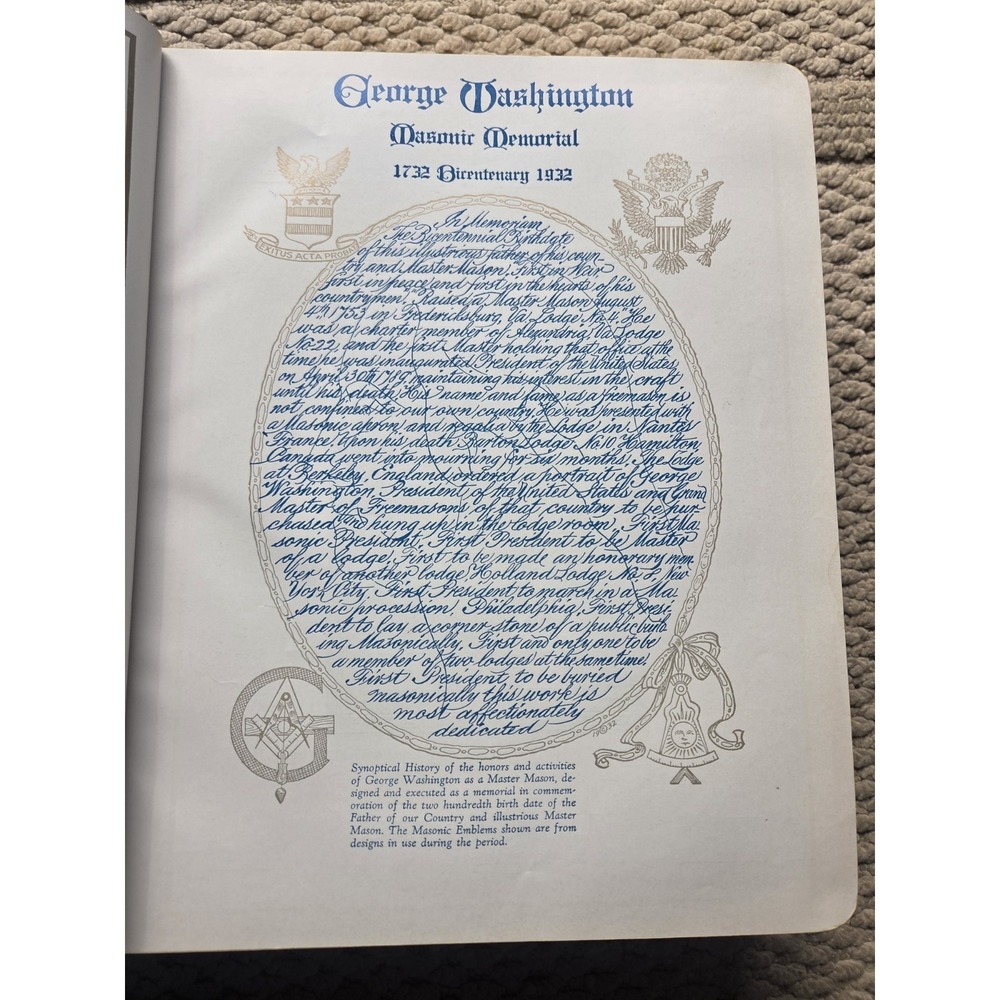 George Washington
Masonic Memorial
1732 Bicentenary 1932
EXITUS ACTA PROBAT
In Memoriam
The Bicentennial Birthdate
of this illustrious father of his coun
try and Master Mason, "First in War
first in peace and first in the hearts of his
countrymen," Raised a Master Mason August
4th 1753 in Fredericksburg, Va. Lodge No. 4. He
was a charter member of Alexandria, Va. Lodge
No. 22, and the first Master holding that office at the
time he was inaugurated President of the United States
on April 30th 1789, maintaining his interest in the craft
until his death. His name and fame as a freemason is
not confined to our own country. He was presented with
a Masonic apron, and regalia by the Lodge in Nantes
France. Upon his death Barton Lodge No. 10, Hamilton
Canada went into mourning for six months. The Lodge
at Berkeley, England, ordered a portrait of George
Washington, President of the United States and Grand
Master of Freemasons of that country, to be pur
chased and hung up in the lodge room, First Ma
sonic President, First President to be Master
of a lodge, First to be made an honorary mem
ber of another lodge, Holland Lodge No. 8, New
York City, First President to march in a Ma
sonic procession, Philadelphia, First Presi
dent to lay a corner stone of a public build
ing Masonically, First and only one to be
a member of two lodges at the same time,
First President to be buried
masonically this work is
most affectionately
dedicated
Synoptical History of the honors and activities
of George Washington as a Master Mason, de-
signed and executed as a memorial in commem-
oration of the two hundredth birth date of the
Father of our Country and illustrious Master
Mason. The Masonic Emblems shown are from
designs in use during the period.